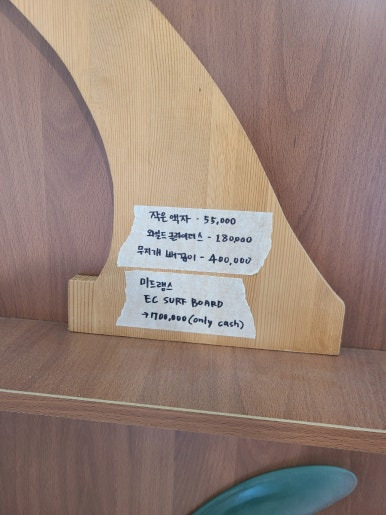 작은 액자 - 55,000
와일드 글라이더스 - 180,000
무지개 배꼽이 - 400,000
미드랭스
EC SURF BOARD
→ 1700,000 (only cash)